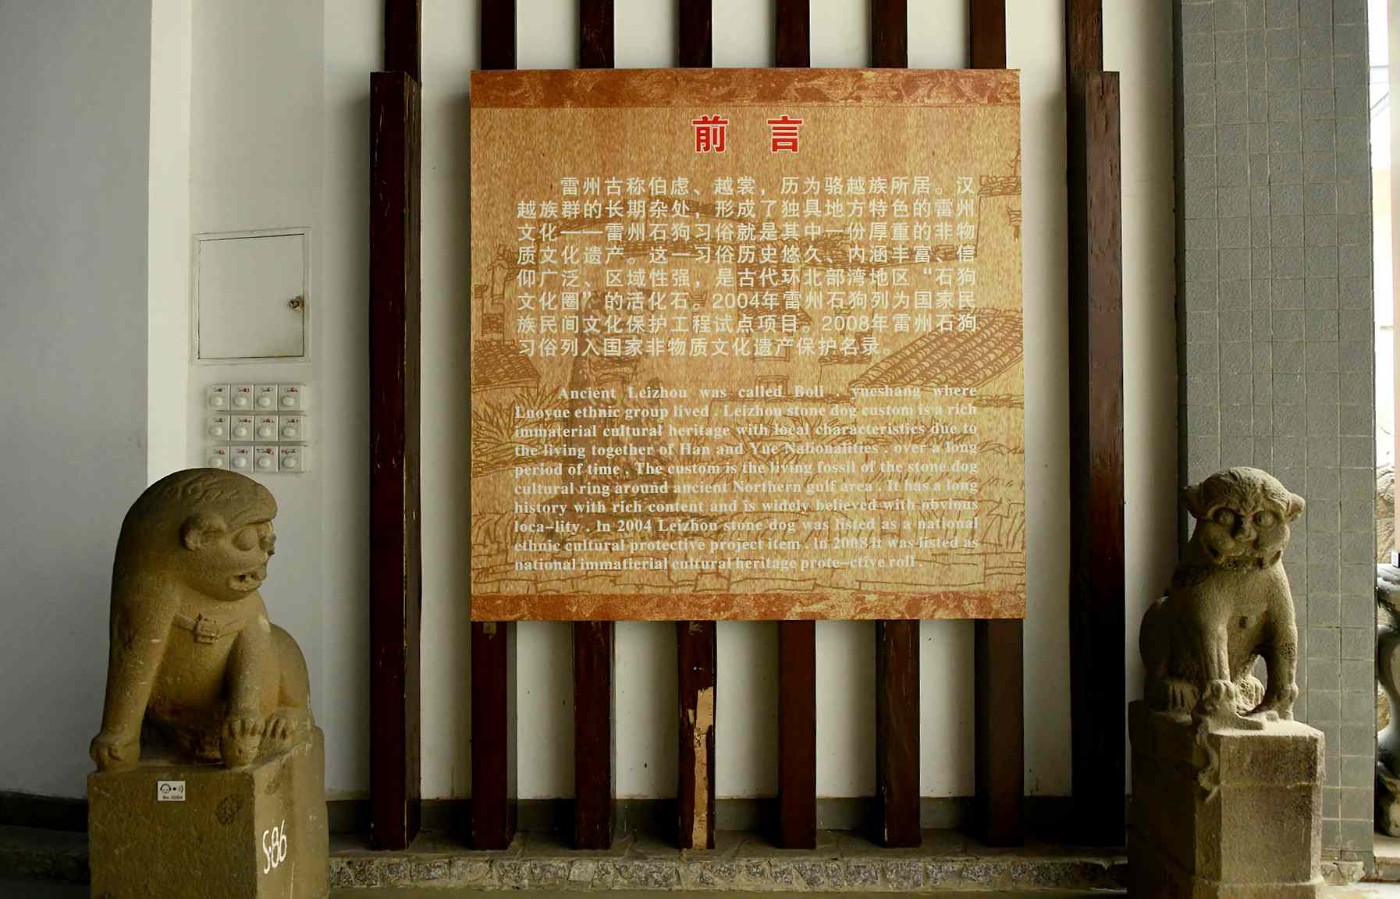 前 言
雷州古称伯虑、越裳，历为骆越族所居。汉
越族群的长期杂处，形成了独具地方特色的雷州
文化——雷州石狗习俗就是其中一份厚重的非物
质文化遗产。这一习俗历史悠久、内涵丰富、信
仰广泛、区域性强，是古代环北部湾地区“石狗
文化圈”的活化石。2004年雷州石狗列为国家民
族民间文化保护工程试点项目。2008年雷州石狗
习俗列入国家非物质文化遗产保护名录。
Ancient Leizhou was called Boli 、yueshang where
Luoyue ethnic group lived . Leizhou stone dog custom is a rich
immaterial cultural heritage with local characteristics due to
the living together of Han and Yue Nationalities . over a long
period of time . The custom is the living fossil of the stone dog
cultural ring around ancient Northern gulf area . It has a long
history with rich content and is widely believed with obvious
loca-lity . In 2004 Leizhou stone dog was listed as a national
ethnic cultural protective project item . In 2008 it was listed as
national immatierial cultural heritage prote-ctive roll .
S·86